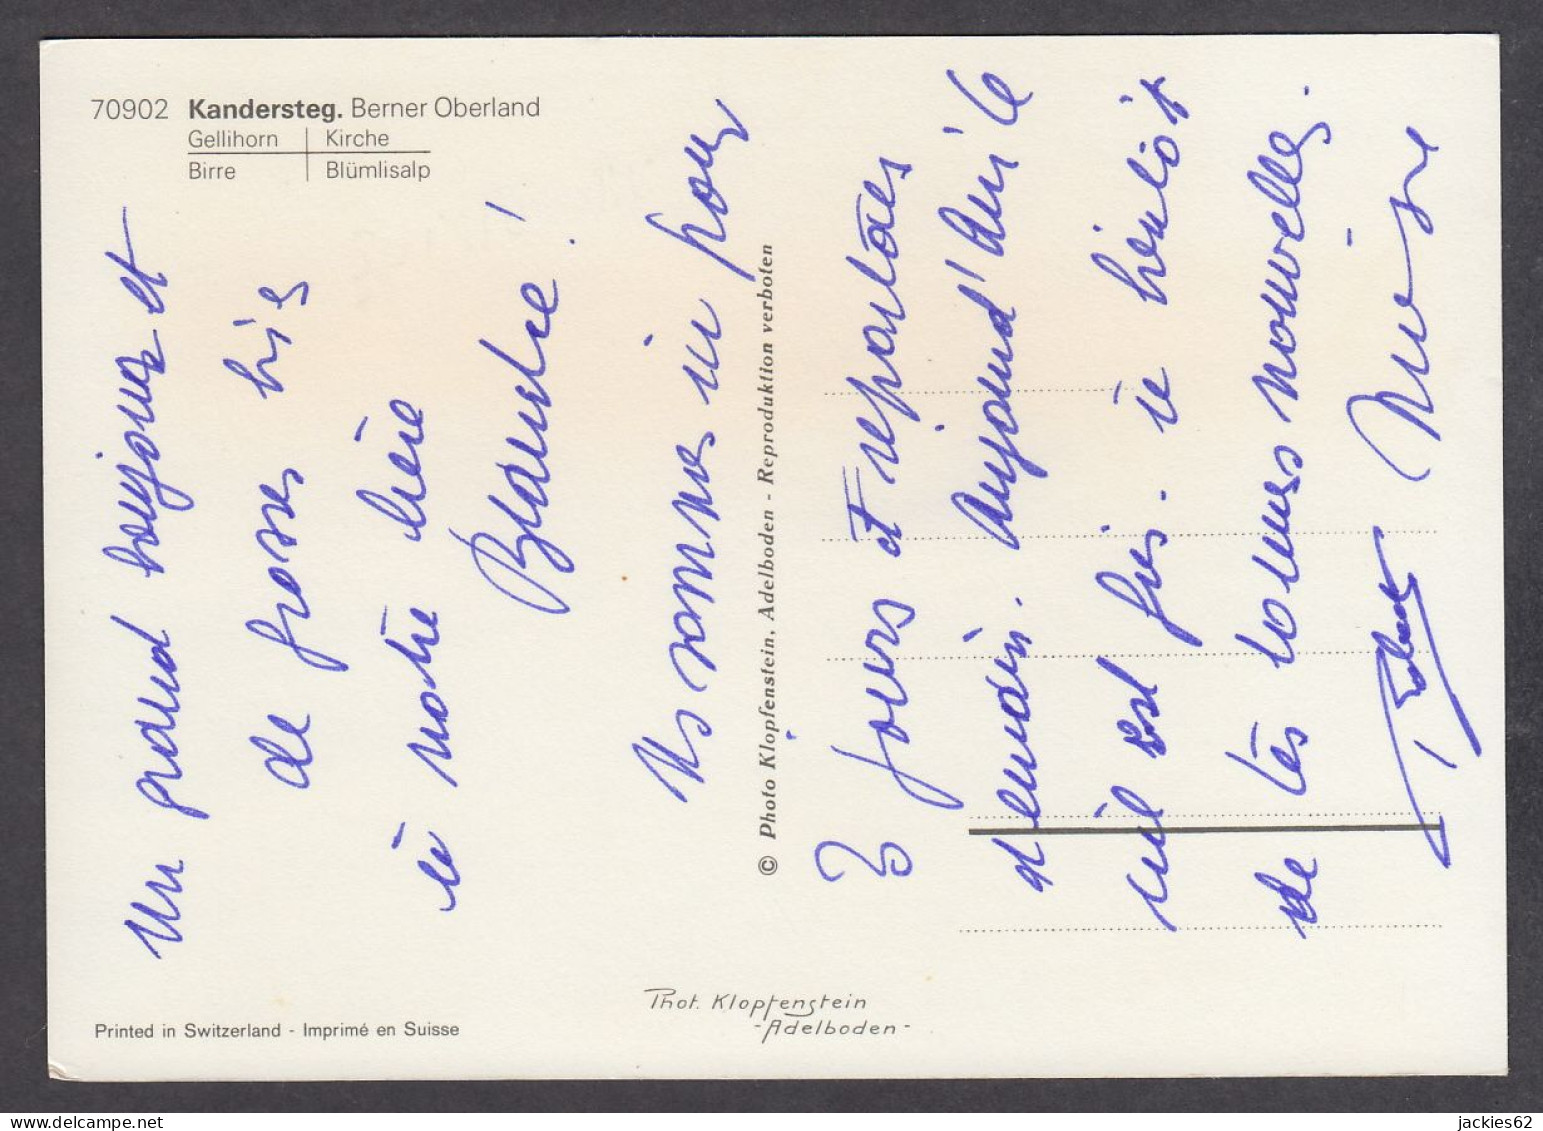 70902 Kandersteg. Berner Oberland
Gellihorn | Kirche
Birre | Blümlisalp
Un grand bonjour et
de grosses bis
à notre chère
Blanche !
Ns sommes ici pour
3 jours et repartons
demain. Aujourd'hui le
ciel est gris. à bientôt
de tes bonnes nouvelles.
© Photo Klopfenstein, Adelboden - Reproduktion verboten
Phot. Klopfenstein
- Adelboden -
Printed in Switzerland - Imprimé en Suisse
jackies62